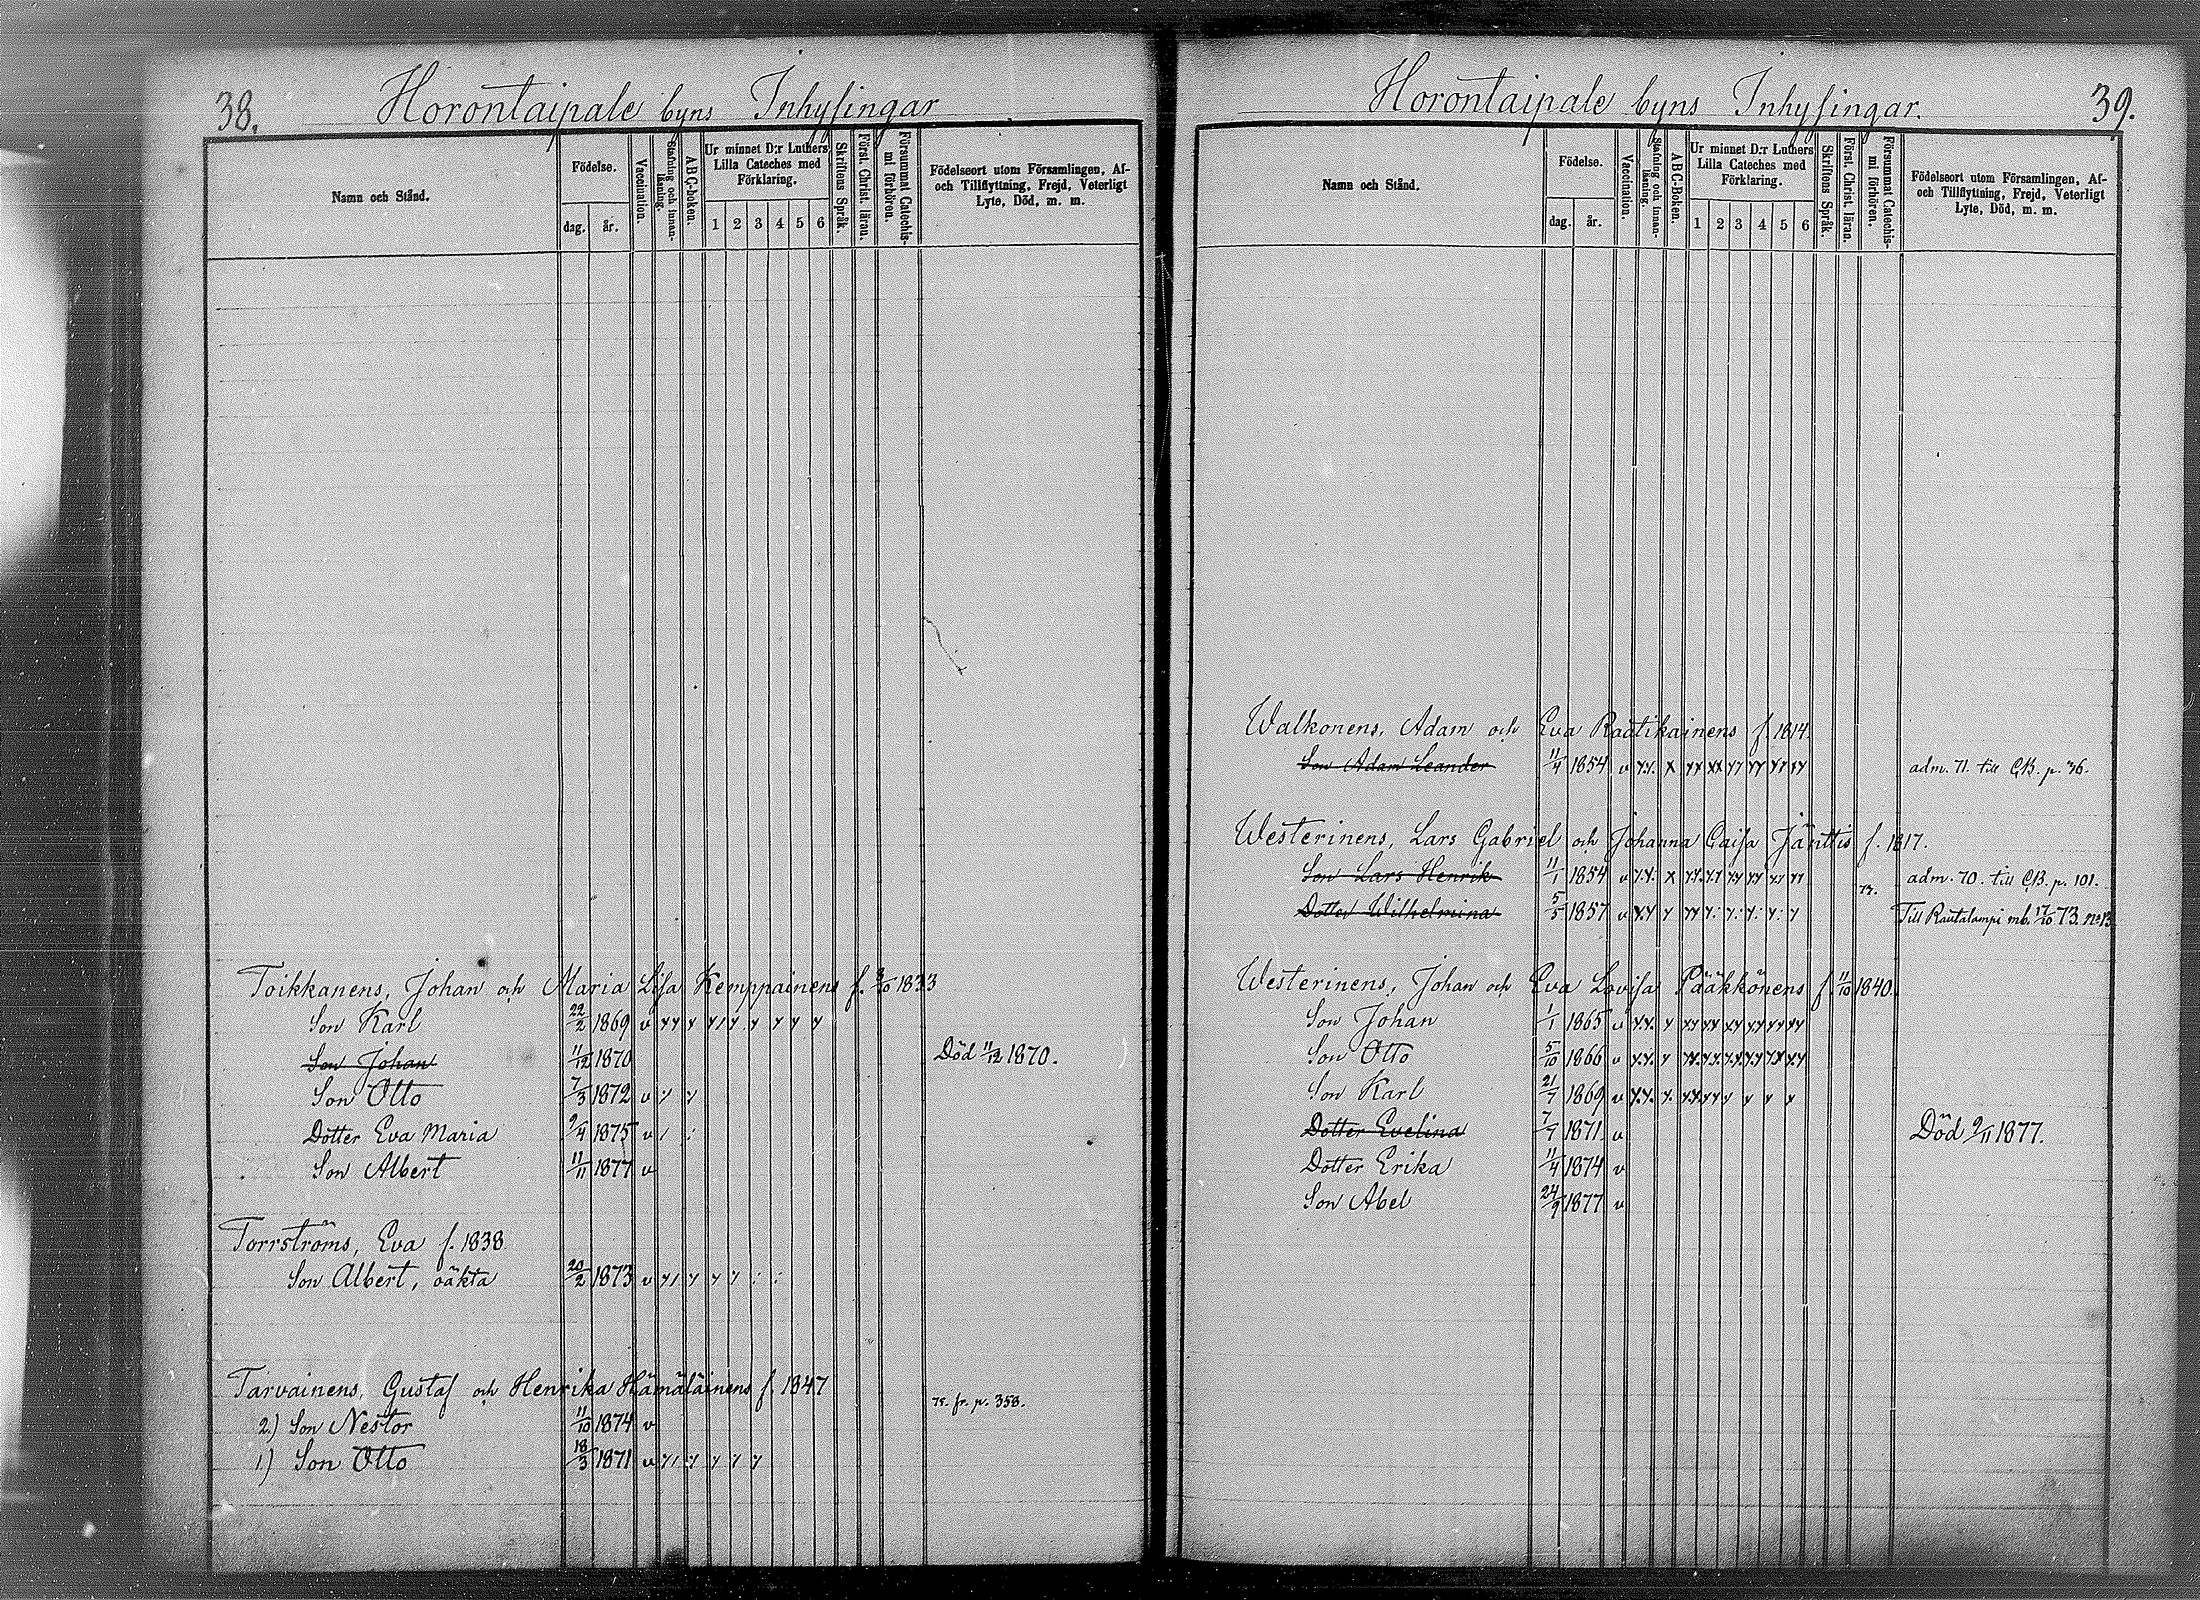 38.
Horontaipale byns Inhysingar
Namn och Stånd.
Födelse.
dag.
år.
Vaccination.
Stafning och innanläsning.
ABC-boken.
Ur minnet D:r Luthers
Lilla Cateches med
Förklaring.
1 2 3 4 5 6
Skriftens Språk.
Först. Christ. läran.
Försummat Catechismi förhören.
Födelseort utom Församlingen, Af-
och Tillflyttning, Frejd, Veterligt
Lyte, Död, m. m.
Toikkanens, Johan och Maria Lisa Kemppainens f. 8/10 1833
Son Karl 22/2 1869 v
Son Johan 11/12 1870 Död 11/12 1870.
Son Otto 7/3 1872 v
Dotter Eva Maria 9/4 1875 v
Son Albert 11/11 1877 v
Torrströms, Eva f. 1838
Son Albert, oäkta 20/2 1873 v
Tarvainens, Gustaf och Henrika Hämäläinens f. 1847
75. fr. p. 358.
2.) Son Nestor 11/10 1874 v
1.) Son Otto 18/3 1871 v
Horontaipale byns Inhysingar.
39.
Namn och Stånd.
Födelse.
dag.
år.
Vaccination.
Stafning och innanläsning.
ABC-Boken.
Ur minnet D:r Luthers
Lilla Cateches med
Förklaring.
1 2 3 4 5 6
Skriftens Språk.
Först. Christ. läran.
Försummat Catechismi förhören.
Födelseort utom Församlingen, Af-
och Tillflyttning, Frejd, Veterligt
Lyte, Död, m. m.
Walkonens, Adam och Eva Raatikainens f. 1814.
Son Adam Leander 11/4 1854 v adm. 71. till CB. p. 36.
Westerinens, Lars Gabriel och Johanna Caisa Jänttis f. 1817.
Son Lars Henrik 11/1 1854 v adm. 70. till CB. p. 101.
73.
Dotter Wilhelmina 5/5 1857 v Till Rautalampi mb. 17/10 73. no 13
Westerinens, Johan och Eva Lovisa Pääkkönens f. 11/10 1840.
Son Johan 1/1 1865 v
Son Otto 5/10 1866 v
Son Karl 21/7 1869 v
Dotter Evelina 7/7 1871. v Död 9/11 1877.
Dotter Erika 11/4 1874 v
Son Abel 24/9 1877 v